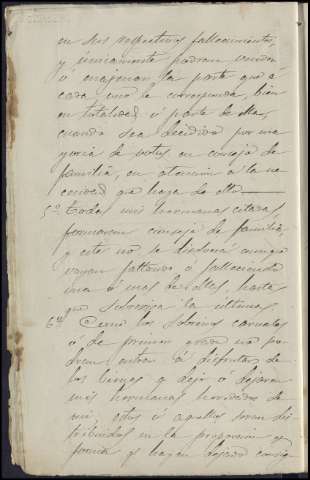 en sus respectivos fallecimientos,
y unicamente podran vender
ó enajenar la parte que á
cada una le corresponda, bien
en totalidad ó parte de ella,
cuando sea decidido por ma
yoria de votos, en consejo de
familia, en atencion á la ne
cesidad que haya de ello
5º Todas mis hermanas citadas,
formaran consejo de familia,
y este no se disolverá aunque
vayan faltando ó falleciendo
una ó mas de ellas, hasta
que sobreviva la ultima
6º Como los sobrinos carnales
ó de primer grado no po
dran entrar á disfrutar de
los bienes q dejo ó dejaran
mis hermanas heredados de
mi, estos ó aquellos seran dis
tribuidos en la proporcion y
forma q hayan dejado consig